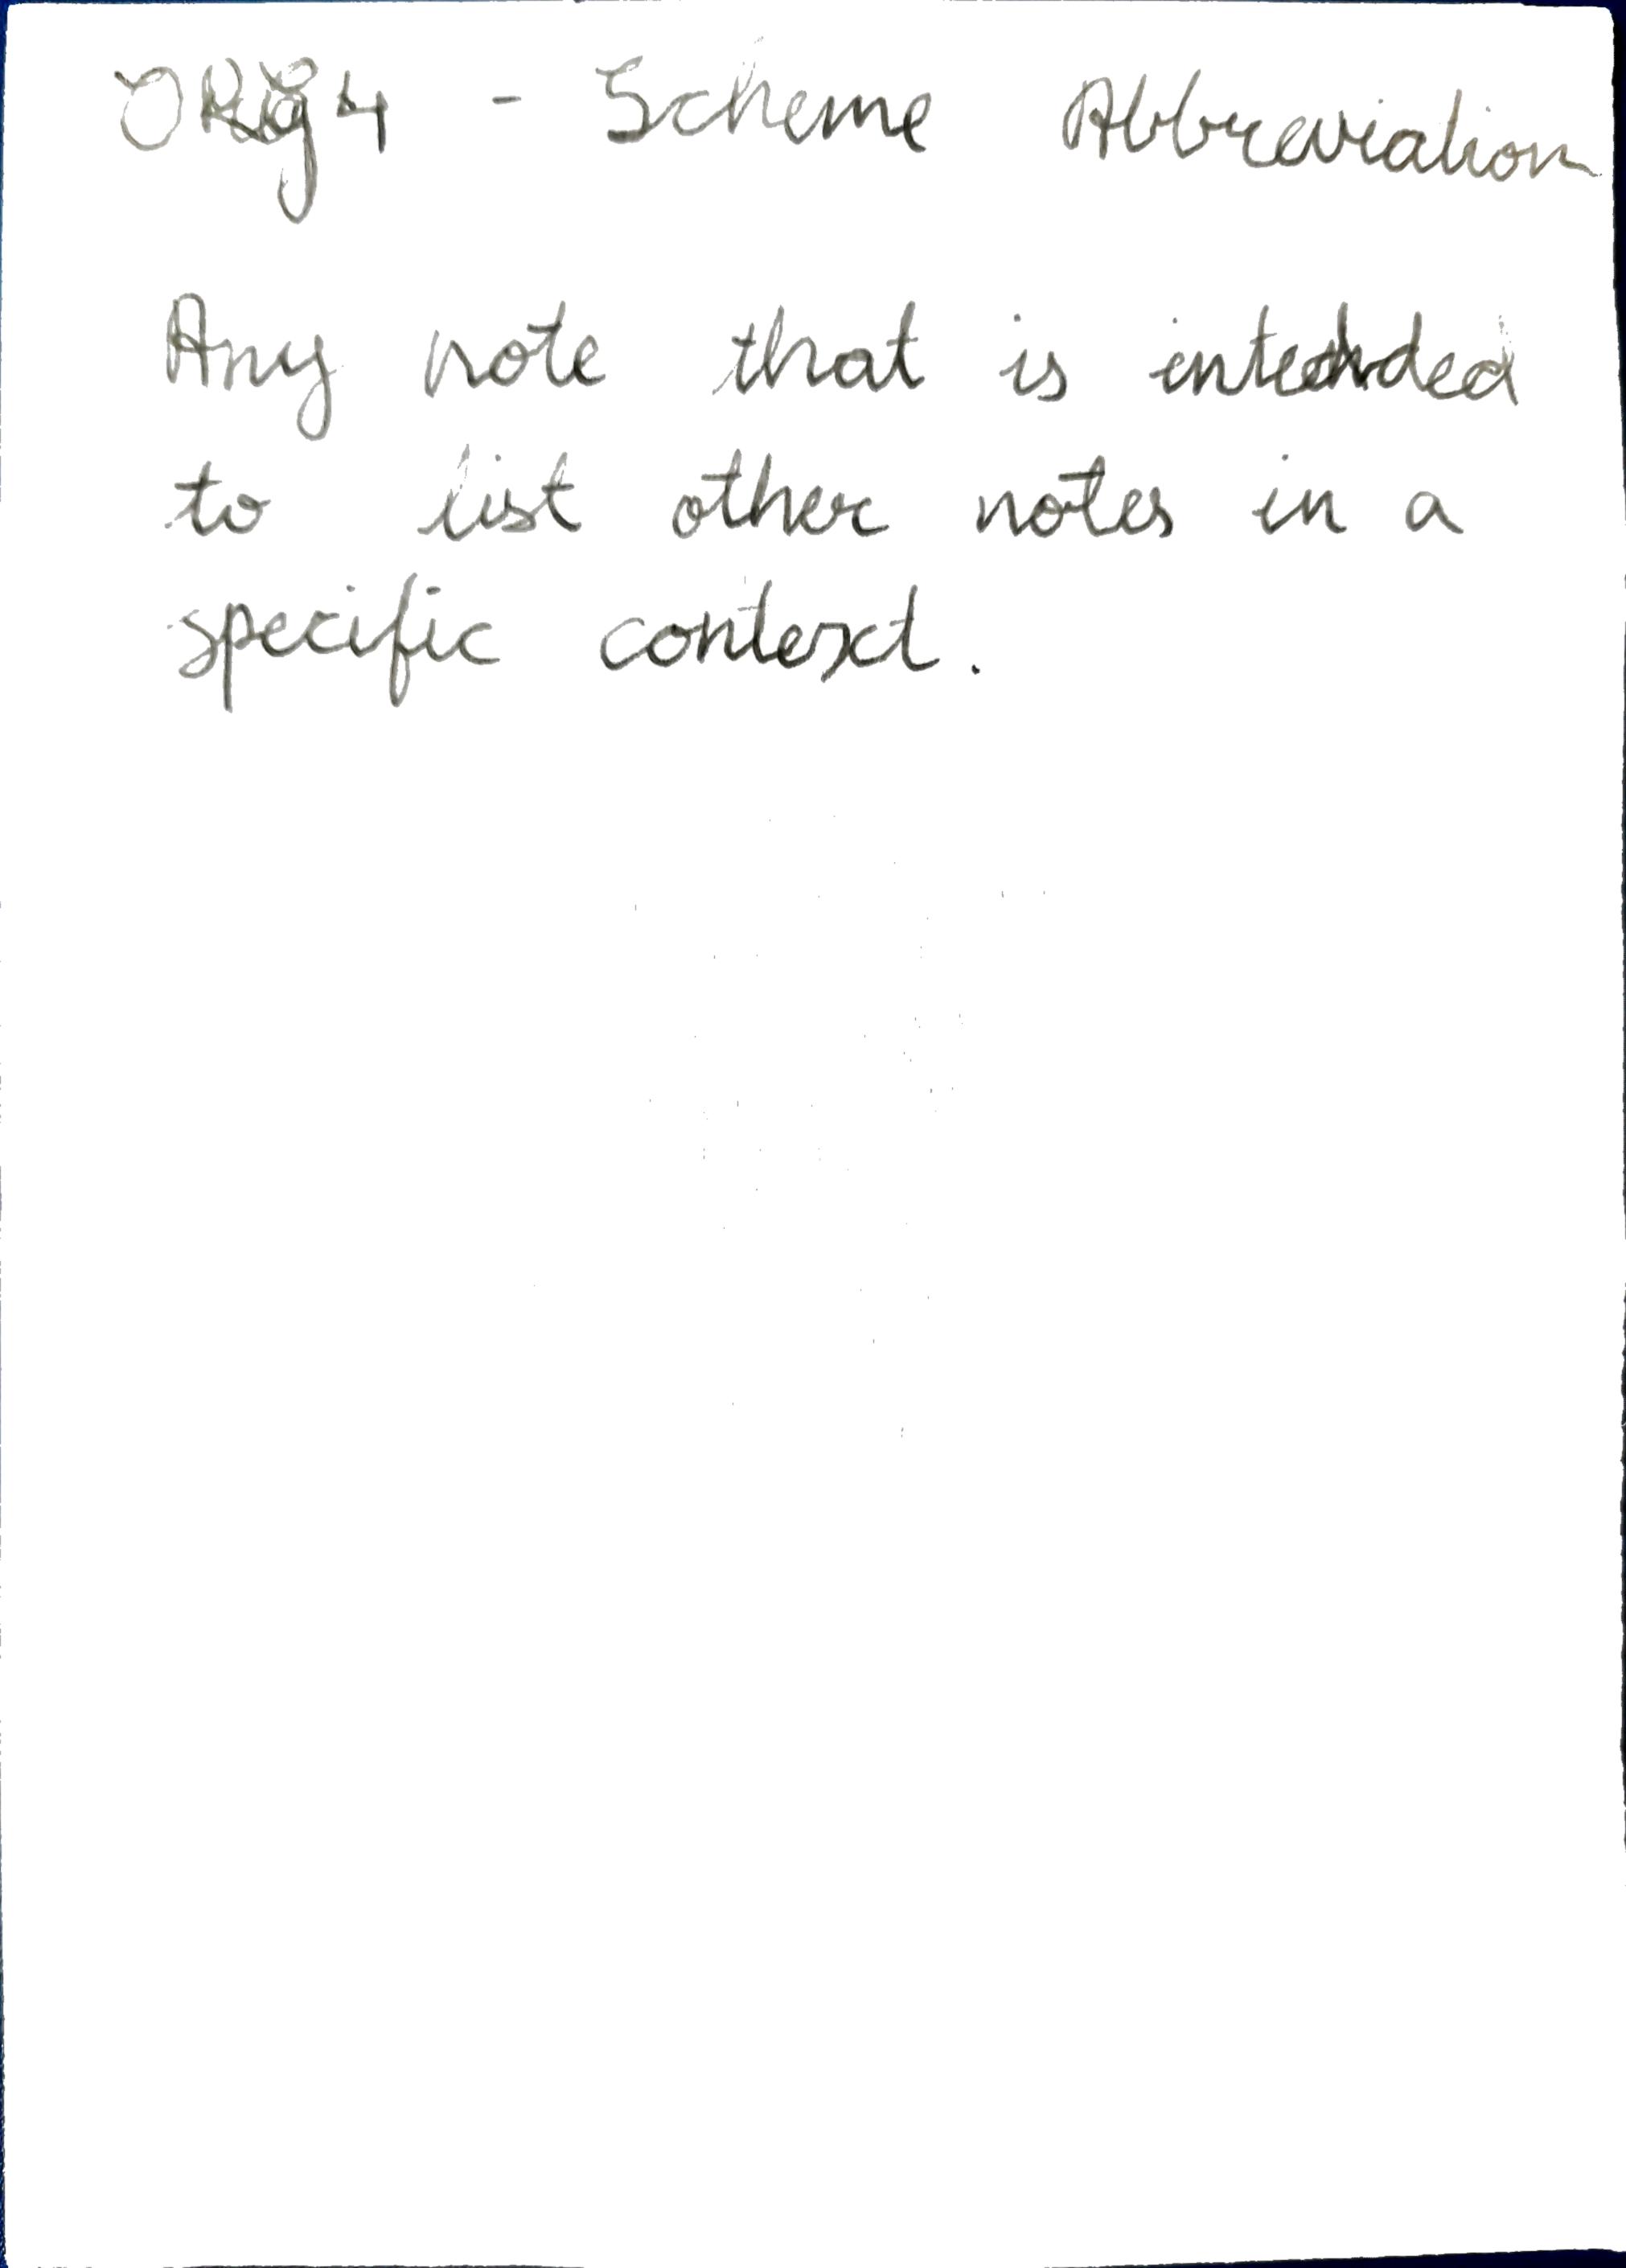 - Scheme Abbreviation
Any note that is intended
to list other notes in a
specific context.